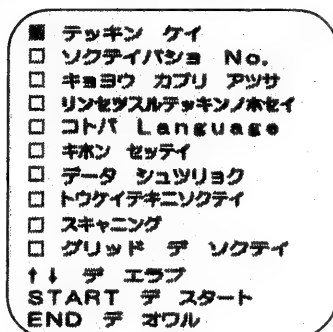 ■ テッキン ケイ
□ ソクテイバショ No.
□ キョヨウ カブリ アツサ
□ リンセツスルテッキンノホセイ
□ コトバ Language
□ キホン セッテイ
□ データ シュツリョク
□ トウケイテキニソクテイ
□ スキャニング
□ グリッド デ ソクテイ
↑↓ デ エラブ
START デ スタート
END デ オワル